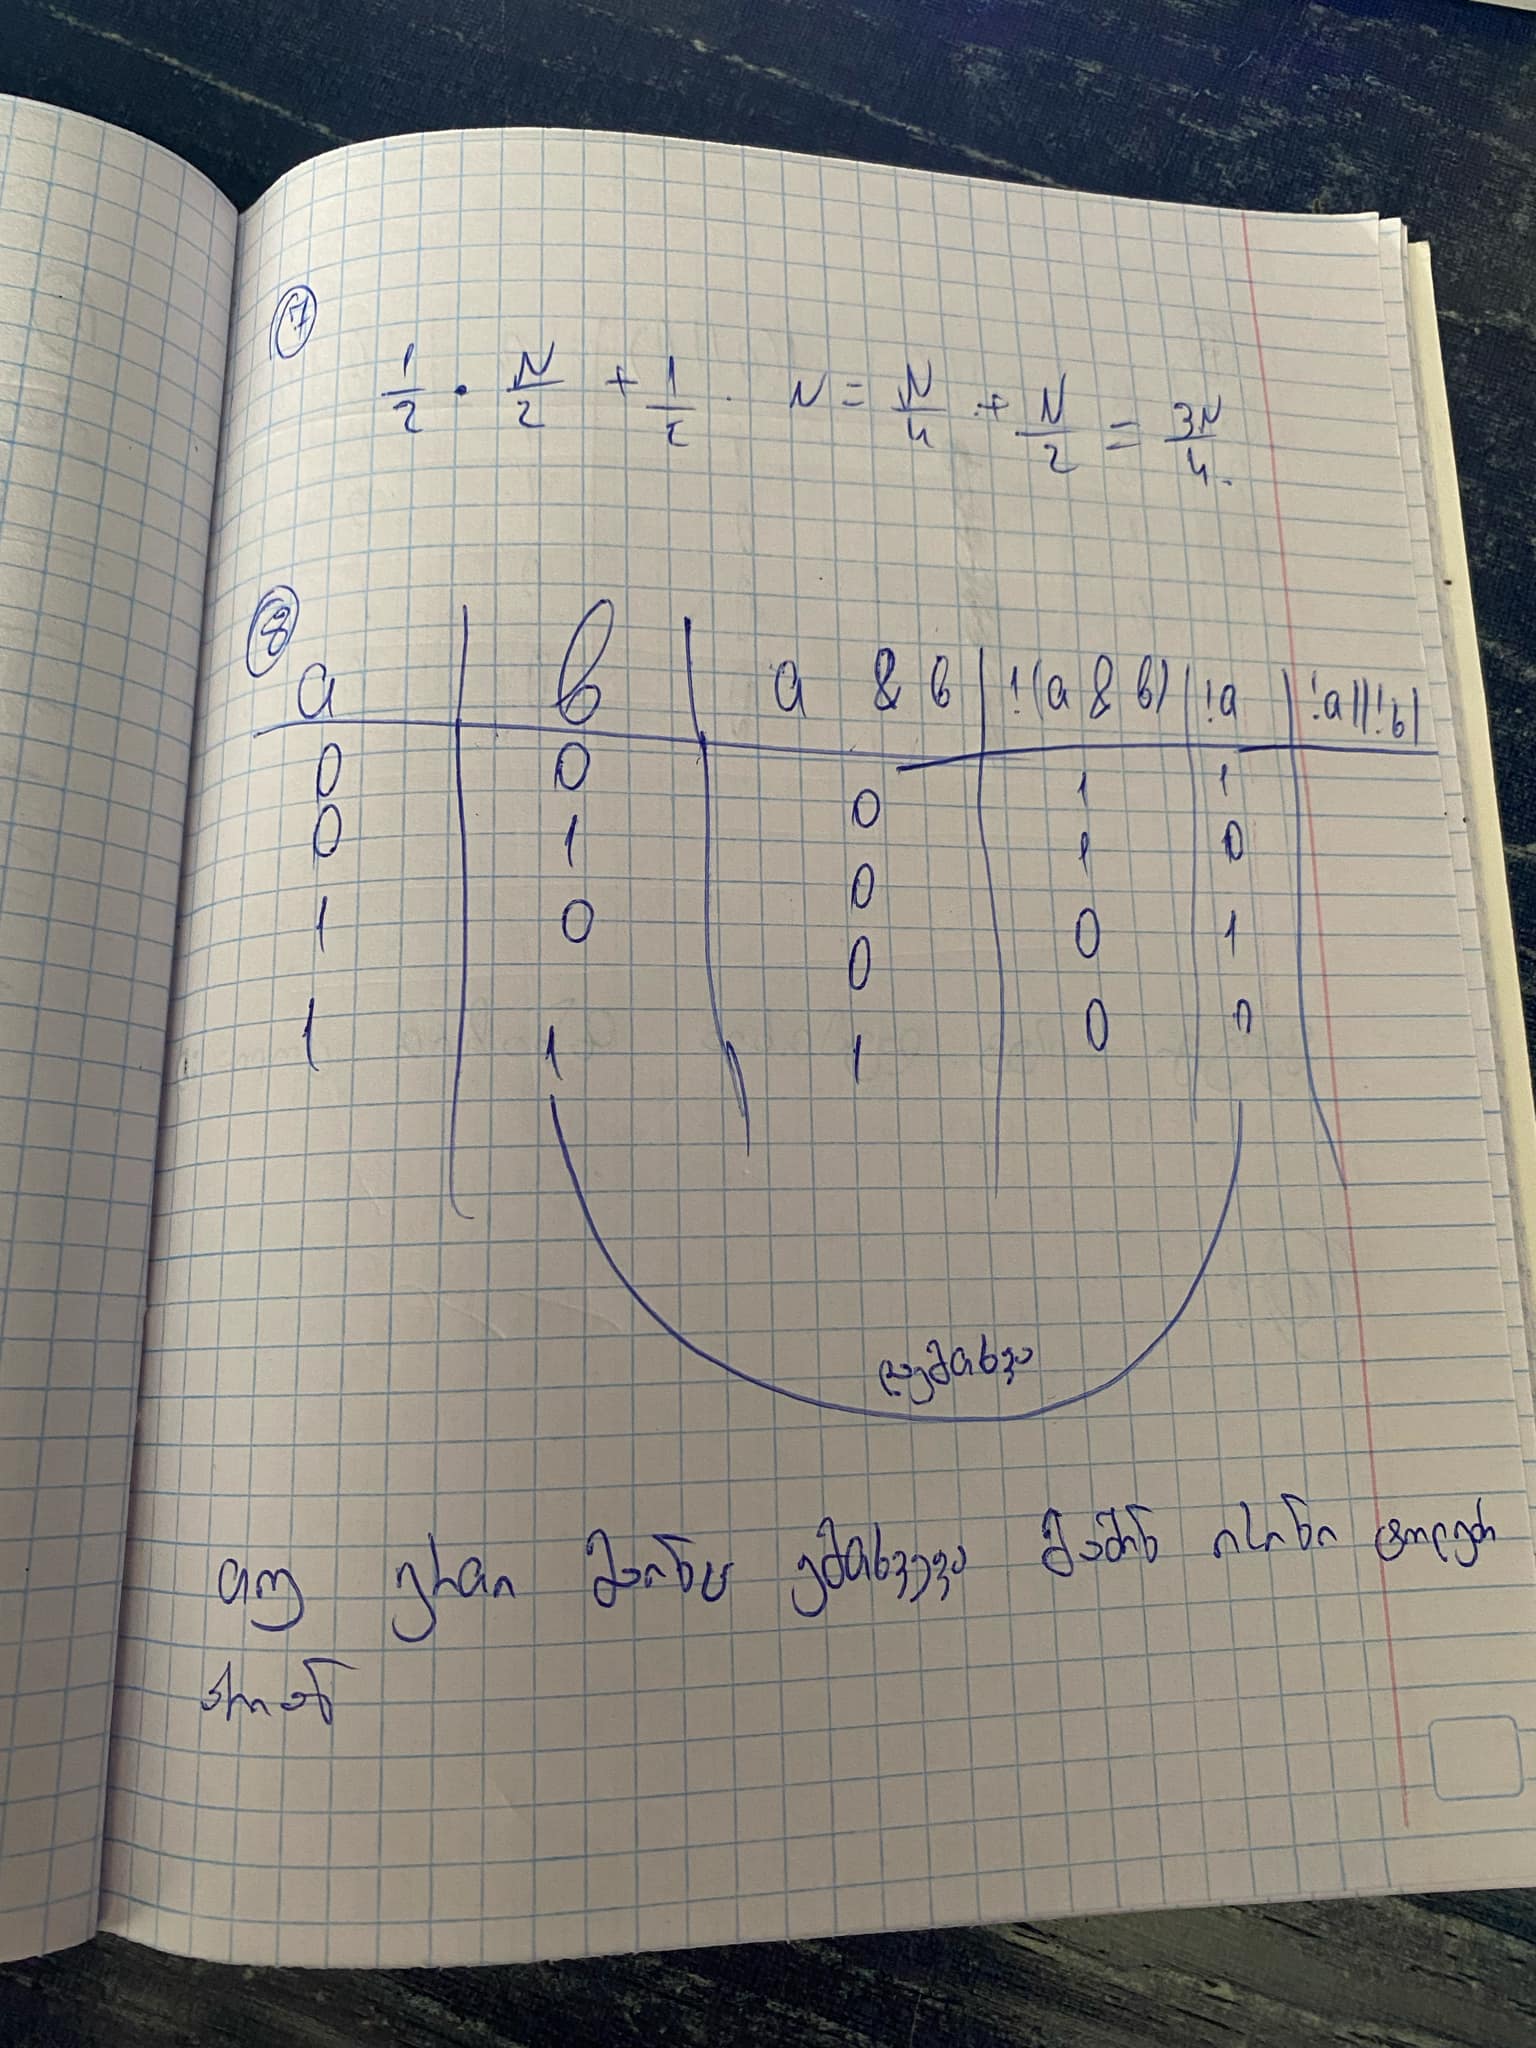 7
1/2 · N/2 + 1/2 · N = N/4 + N/2 = 3N/4.
8
a | b | a & b | !(a & b) | !a | !a||!b|
0 | 0 | 0 | 1 | 1
0 | 1 | 0 | 1 | 0
1 | 0 | 0 | 0 | 1
1 | 1 | 1 | 0 | 0
დემთხვა
თუ ერთი მაინც ემთხვევა მაშინ ისინი ტოლები
არიან